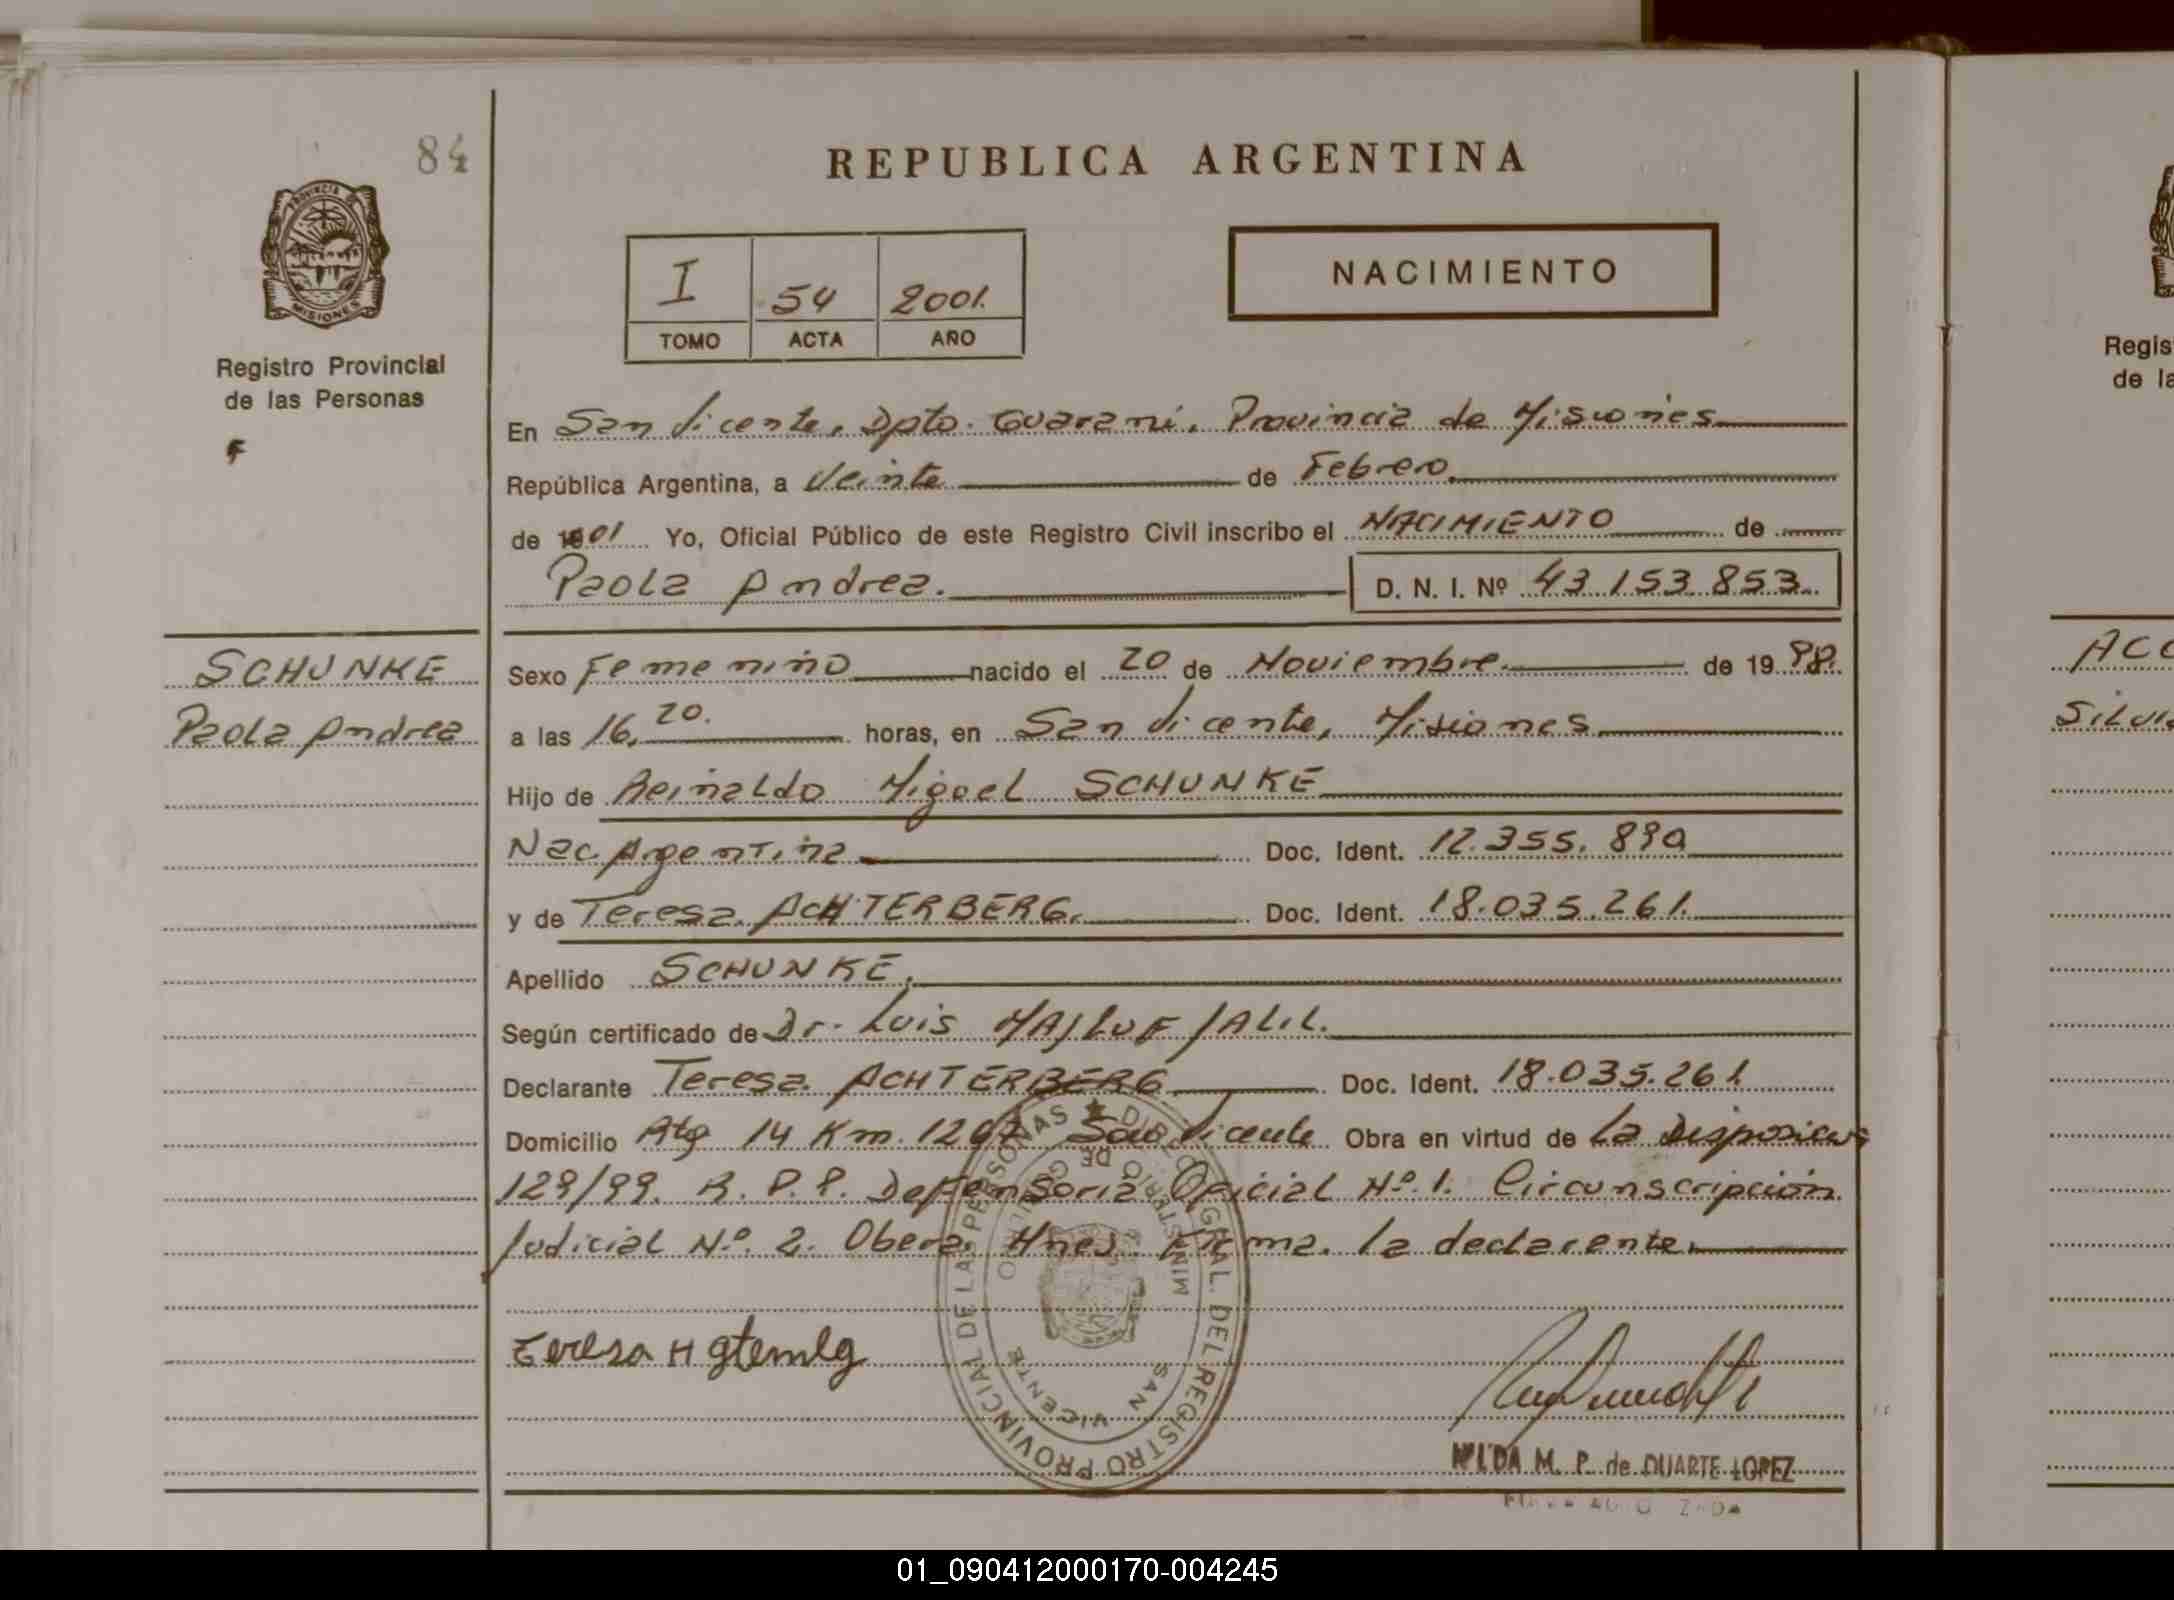 84
REPUBLICA ARGENTINA
PROVINCIA DE
MISIONES
Registro Provincial
de las Personas
I 54 2001.
TOMO ACTA AÑO
NACIMIENTO
En San Vicente, Dpto. Guarani, Provincia de Misiones
República Argentina, a Veinte de Febrero
de 01 Yo, Oficial Público de este Registro Civil inscribo el NACIMIENTO de
Paola Andrea. D. N. I. Nº 43.153.853.
SCHUNKE
Paola Andrea
Sexo Femenino nacido el 20 de Noviembre de 19 98.
a las 16,20. horas, en San Vicente, Misiones
Hijo de Reinaldo Miguel SCHUNKE
Nac. Argentina Doc. Ident. 12.355.890
y de Teresa ACHTERBERG. Doc. Ident. 18.035.261.
Apellido SCHUNKE.
Según certificado de Dr. Luis MAJLUF JALIL.
Declarante Teresa ACHTERBERG Doc. Ident. 18.035.261
Domicilio Km. San Vicente Obra en virtud de La Disposicion
129/99. R. P. P. Defensoria Oficial Nº 1. Circunscripción
Judicial Nº. 2. Obera, Mnes. Firma. la declarante.
DIRECC. GRAL. DEL REGISTRO PROVINCIAL DE LAS PERSONAS
MINISTERIO DE GOBIERNO
SAN VICENTE
Teresa
M. P. de DUARTE LOPEZ
ACO
Silvi
Regis
de la
01_090412000170-004245